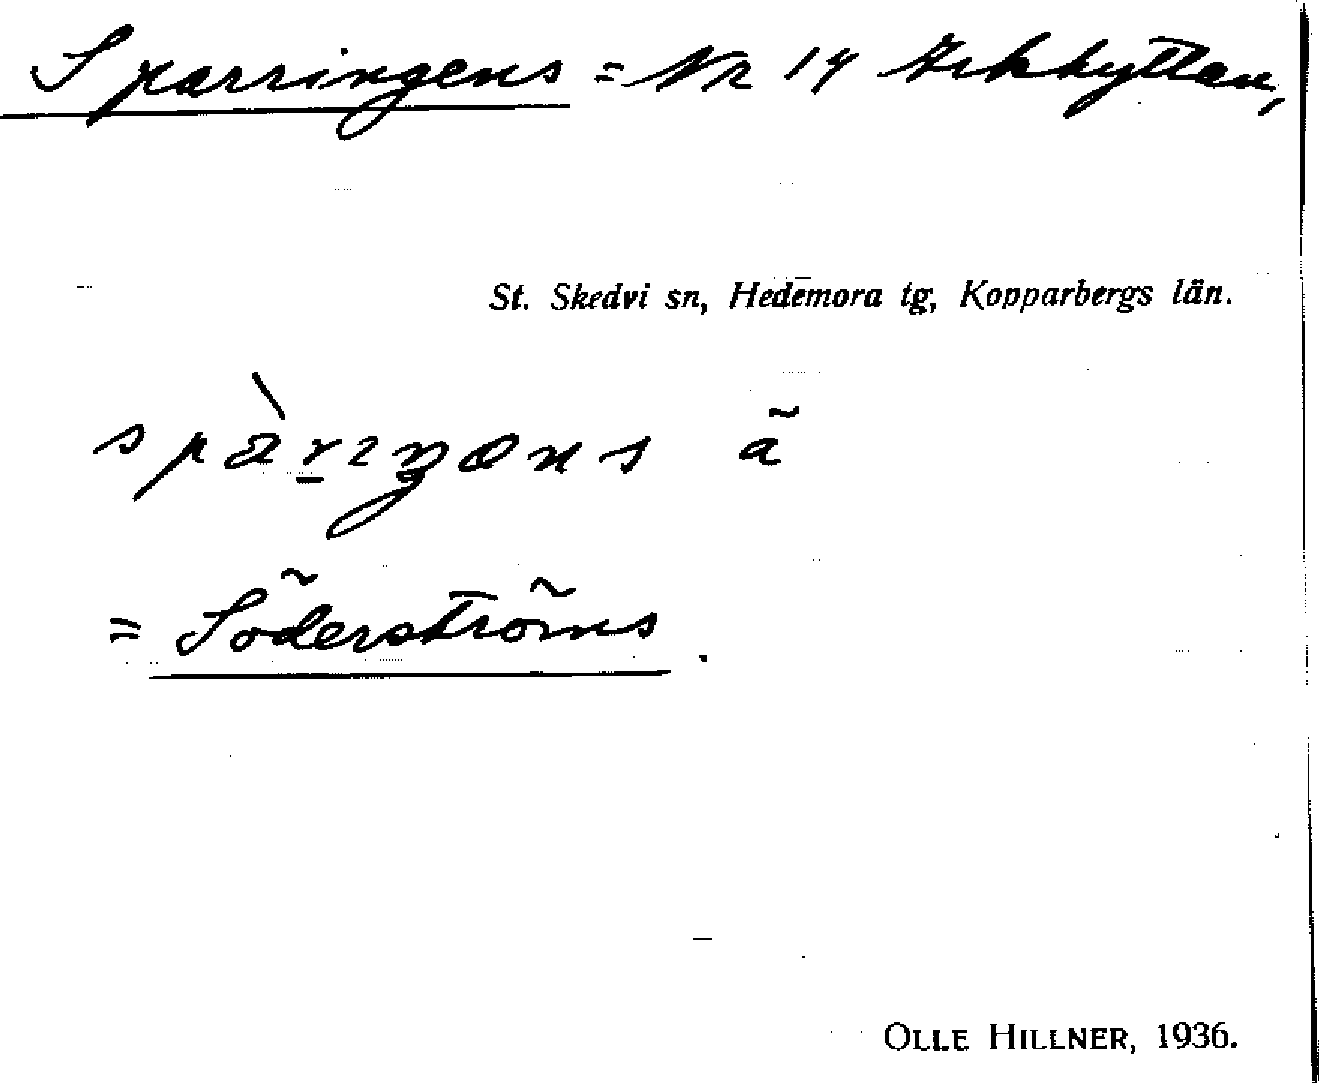 Sparringens = Nr 14 Arkhyttan,
St. Skedvi sn, Hedemora tg, Kopparbergs län.
= Söderströms.
OLLE HILLNER, 1936.